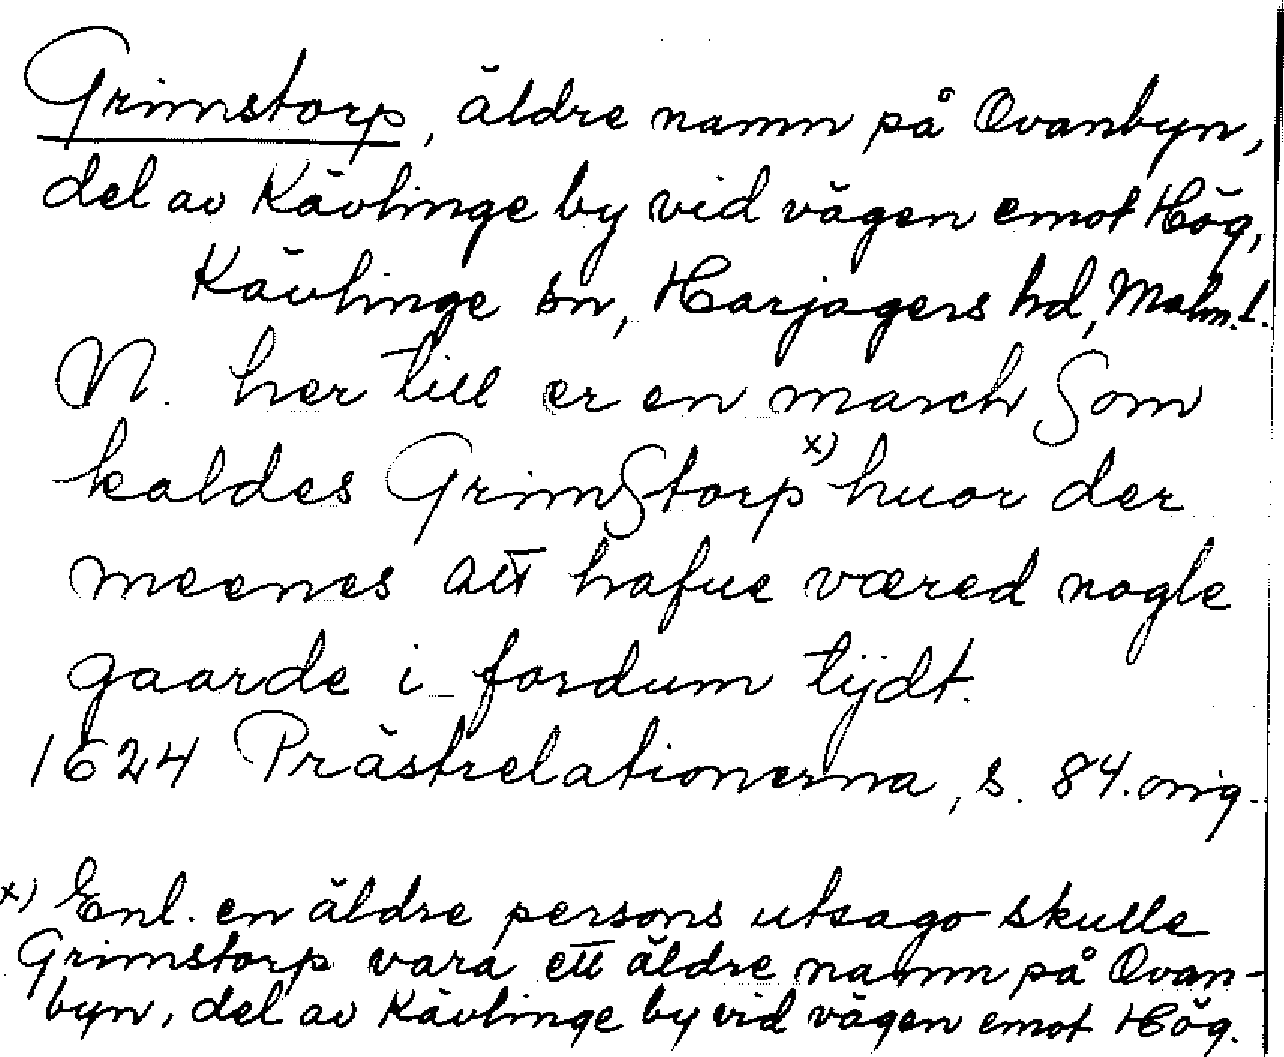 Grimstorp, äldre namn på Ovanbyn,
del av Kävlinge by vid vägen emot Hög,
Kävlinge sn, Harjagers hd, Malm.l.
N. her till er en march Som
kaldes GrimStorp x) huor der
meenes att hafue væred nogle
gaarde i fordum tijdt.
1624 Prästrelationerna, s. 84. orig.
x) Enl. en äldre persons utsago skulle
Grimstorp vara ett äldre namn på Ovan-
byn, del av Kävlinge by vid vägen emot Hög.